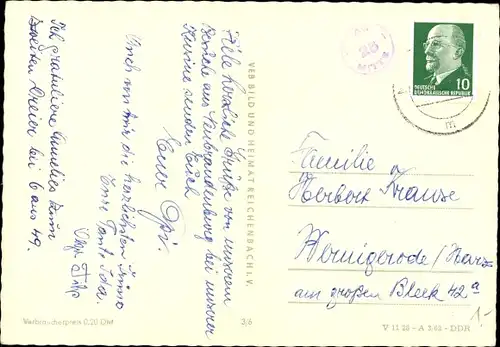 Viele herzliche Grüße von unserem
Besuch aus Neubrandenburg bei unserer
senden Euch
Euer Opi.
Auch mir die herzlichsten
Eure Tante Ida.
Ich gratuliere Annelies zum
zweiten Dreier bei 6 aus 49.
VEB BILD UND HEIMAT REICHENBACH I. V.
28
DEUTSCHE
DEMOKRATISCHE REPUBLIK
10
Familie
Herbert Krause
Wernigerode/Harz
am großen Bleek 42a
1.-
Verbraucherpreis 0,20 DM
3/6
V 11 28 - A 1/63 - DDR